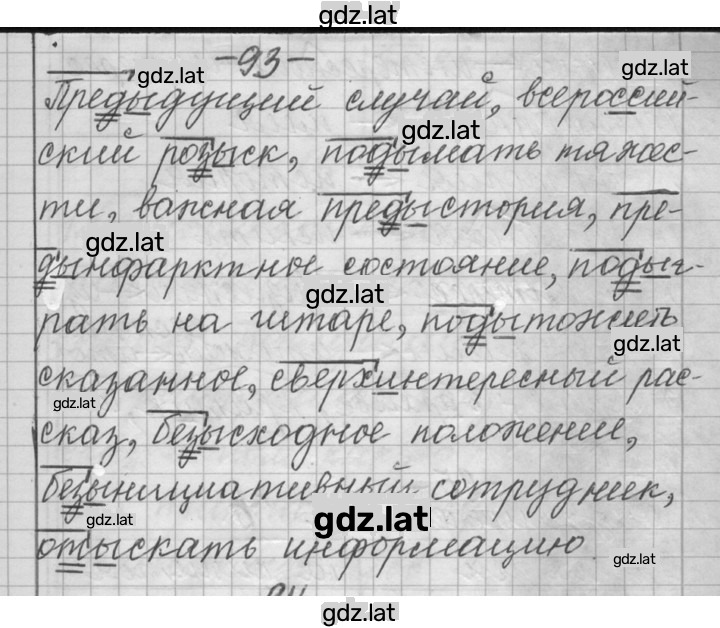 gdz.lat
-93-
gdz.lat
gdz.lat
Предыдущий случай, всероссий-
gdz.lat
ский розыск, подымать тяжес-
ти, важная предыстория, пре-
gdz.lat
дынфарктное состояние, подыг-
gdz.lat
рать на гитаре, подытожить
gdz.lat
сказанное, сверхинтересный рас-
gdz.lat
сказ, безысходное положение,
безынициативный сотрудник,
gdz.lat
gdz.lat
отыскать информацию.
gdz.lat
gdz.lat